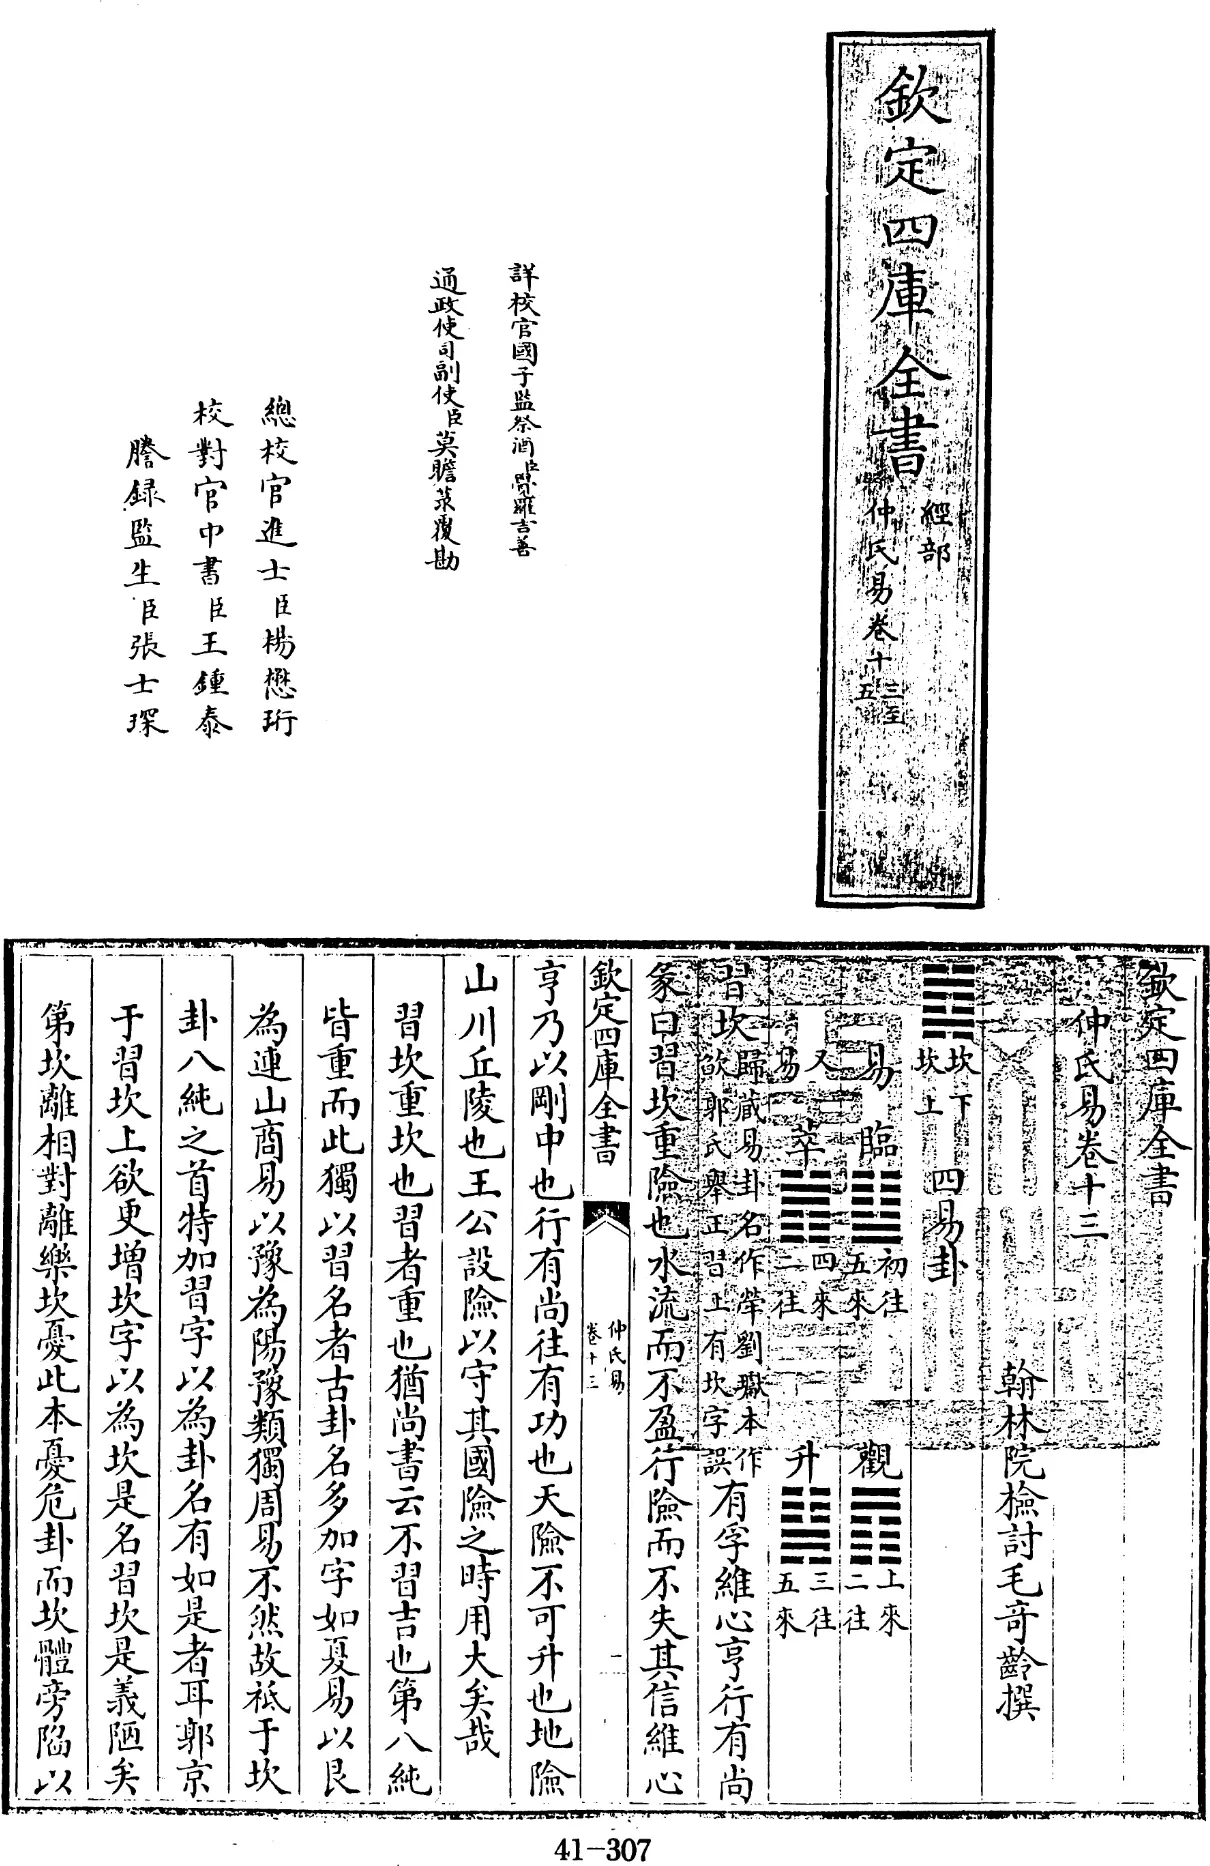 欽定四庫全書
經部
仲氏易卷十三至五
詳校官國子監祭酒臣覺羅吉善
通政使司副使臣莫瞻菉覆勘
總校官進士臣楊懋珩
校對官中書臣王鍾泰
謄録監生臣張士琛
欽定四庫全書
仲氏易卷十三
翰林院檢討毛奇齡撰
坎下坎上 四易卦
易 臨 初往五來 觀 上來二往
又易 萃 四來二往 升 三往五來
習坎歸藏易卦名作犖劉瓛本作欿郭氏舉正習上有坎字誤有孚維心亨行有尚
彖曰習坎重險也水流而不盈行險而不失其信維心
欽定四庫全書 仲氏易 卷十三 一
亨乃以剛中也行有尚往有功也天險不可升也地險
山川丘陵也王公設險以守其國險之時用大矣哉
習坎重坎也習者重也猶尚書云不習吉也第八純
皆重而此獨以習名者古卦名多加字如夏易以艮
為連山商易以豫為陽豫類獨周易不然故祇于坎
卦八純之首特加習字以為卦名有如是者耳郭京
于習坎上欲更增坎字以為坎是名習坎是義陋矣
第坎離相對離樂坎憂此本憂危卦而坎體旁陷以
41-307